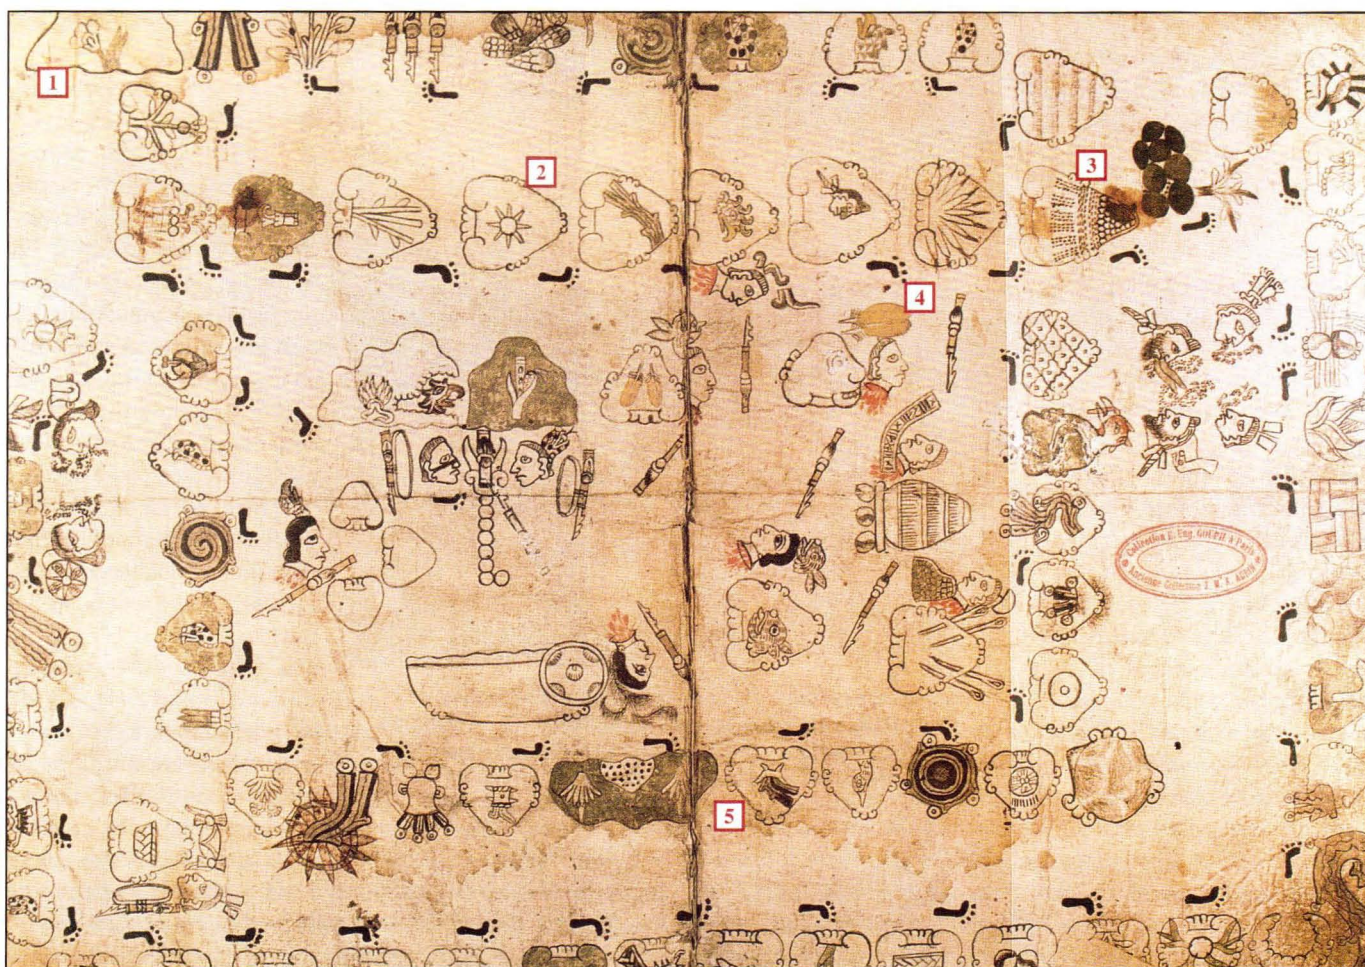 1
2
3
4
Collection E. Eug. GOUPIL à Paris
Ancienne Collection J. M. A. AUBIN
5